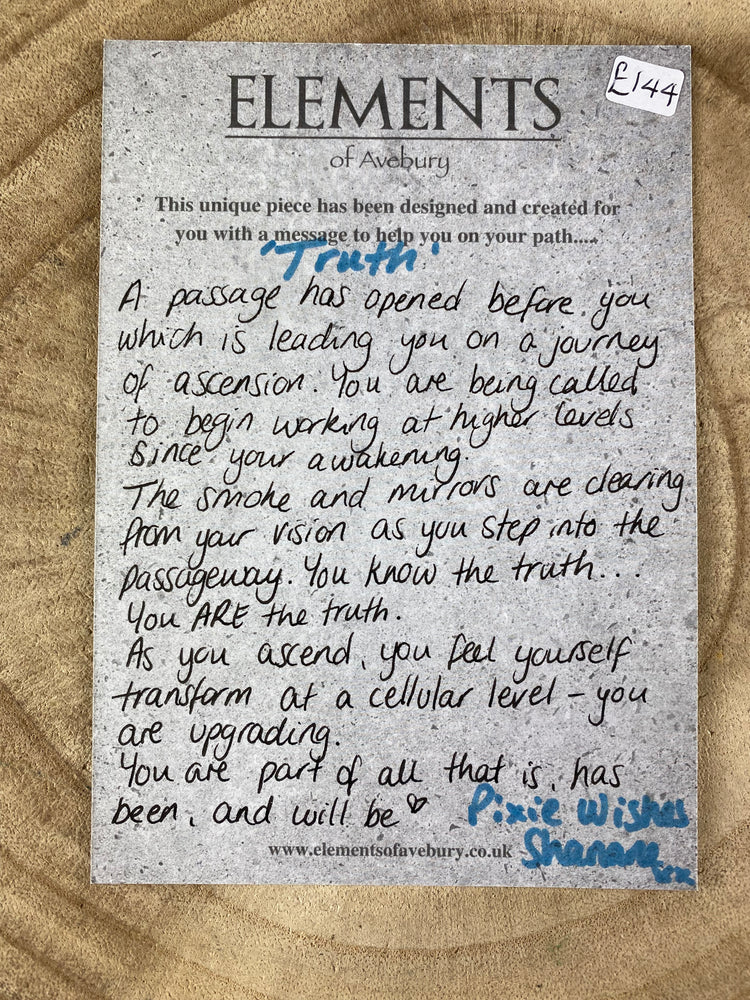 £144
ELEMENTS
of Avebury
This unique piece has been designed and created for
you with a message to help you on your path....
'Truth'
A passage has opened before you
which is leading you on a journey
of ascension. You are being called
to begin working at higher levels
since your awakening.
The smoke and mirrors are clearing
from your vision as you step into the
passageway. You know the truth...
You ARE the truth.
As you ascend, you feel yourself
transform at a cellular level - you
are upgrading.
You are part of all that is, has
been, and will be ♡
Pixie Wishes
www.elementsofavebury.co.uk